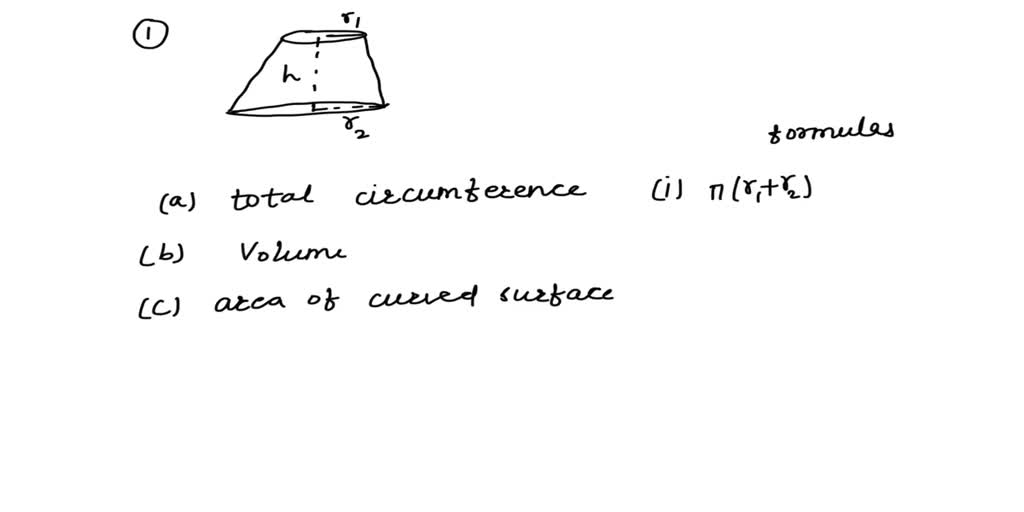 ①
r₁
h
r₂
formulas
(a) total circumference (i) π(r₁+r₂)
(b) Volume
(c) area of curved surface